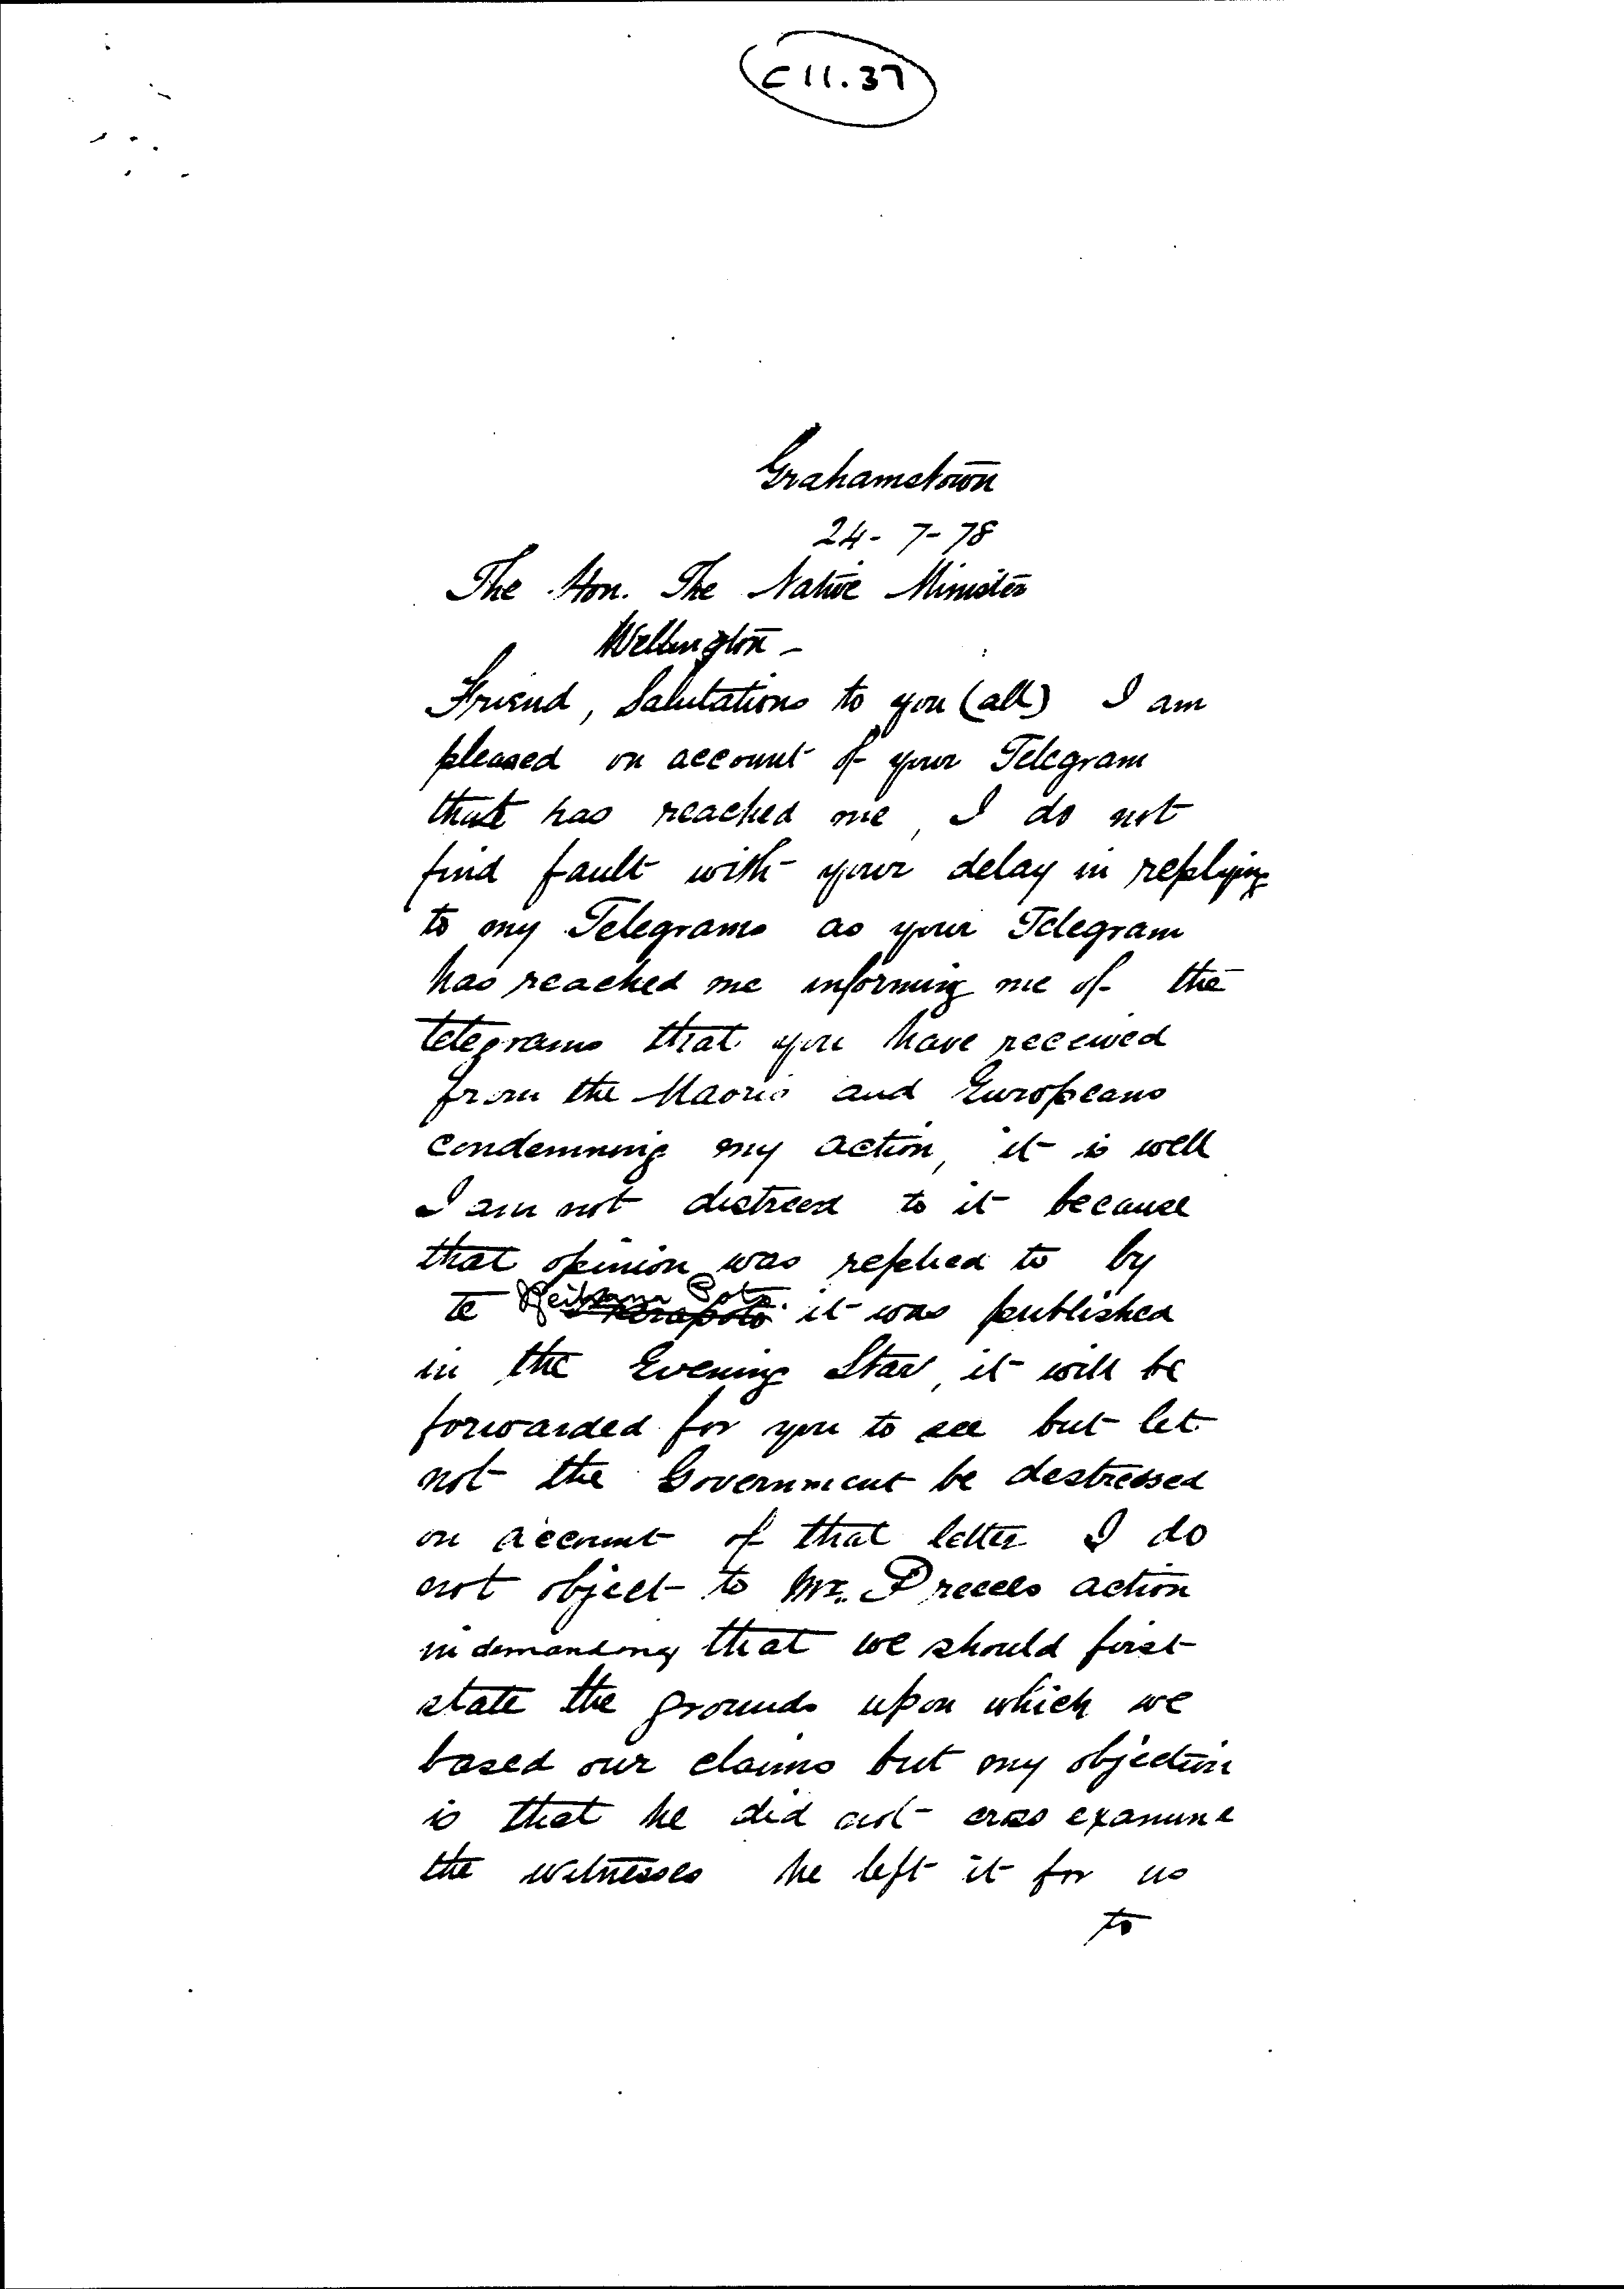 C 11.37
Grahamstown
24-7-78
The Hon. The Native Minister
Wellington -
Friend, Salutations to you (all) I am
pleased on account of your Telegram
that has reached me, I do not
find fault with your delay in replying
to my Telegrams as your Telegram
has reached me informing me of the
telegrams that you have received
from the Maoris and Europeans
condemning my action, it is well
I am not distresd to it because
that opinion was replied to by
te Poto it was published
in the Evening Star, it will be
forwarded for you to see but let
not the Government be destressed
on account of that letter I do
not object to Mr. Preeces action
in demanding that we should first
state the grounds upon which we
based our claims but my objection
is that he did not cross examine
the witnesses he left it for us
to